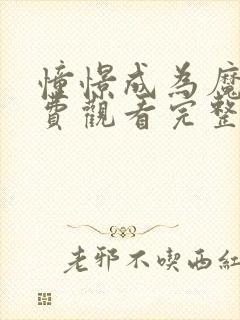 憧憬成為魔
費觀看完整
老邪不喫西紅